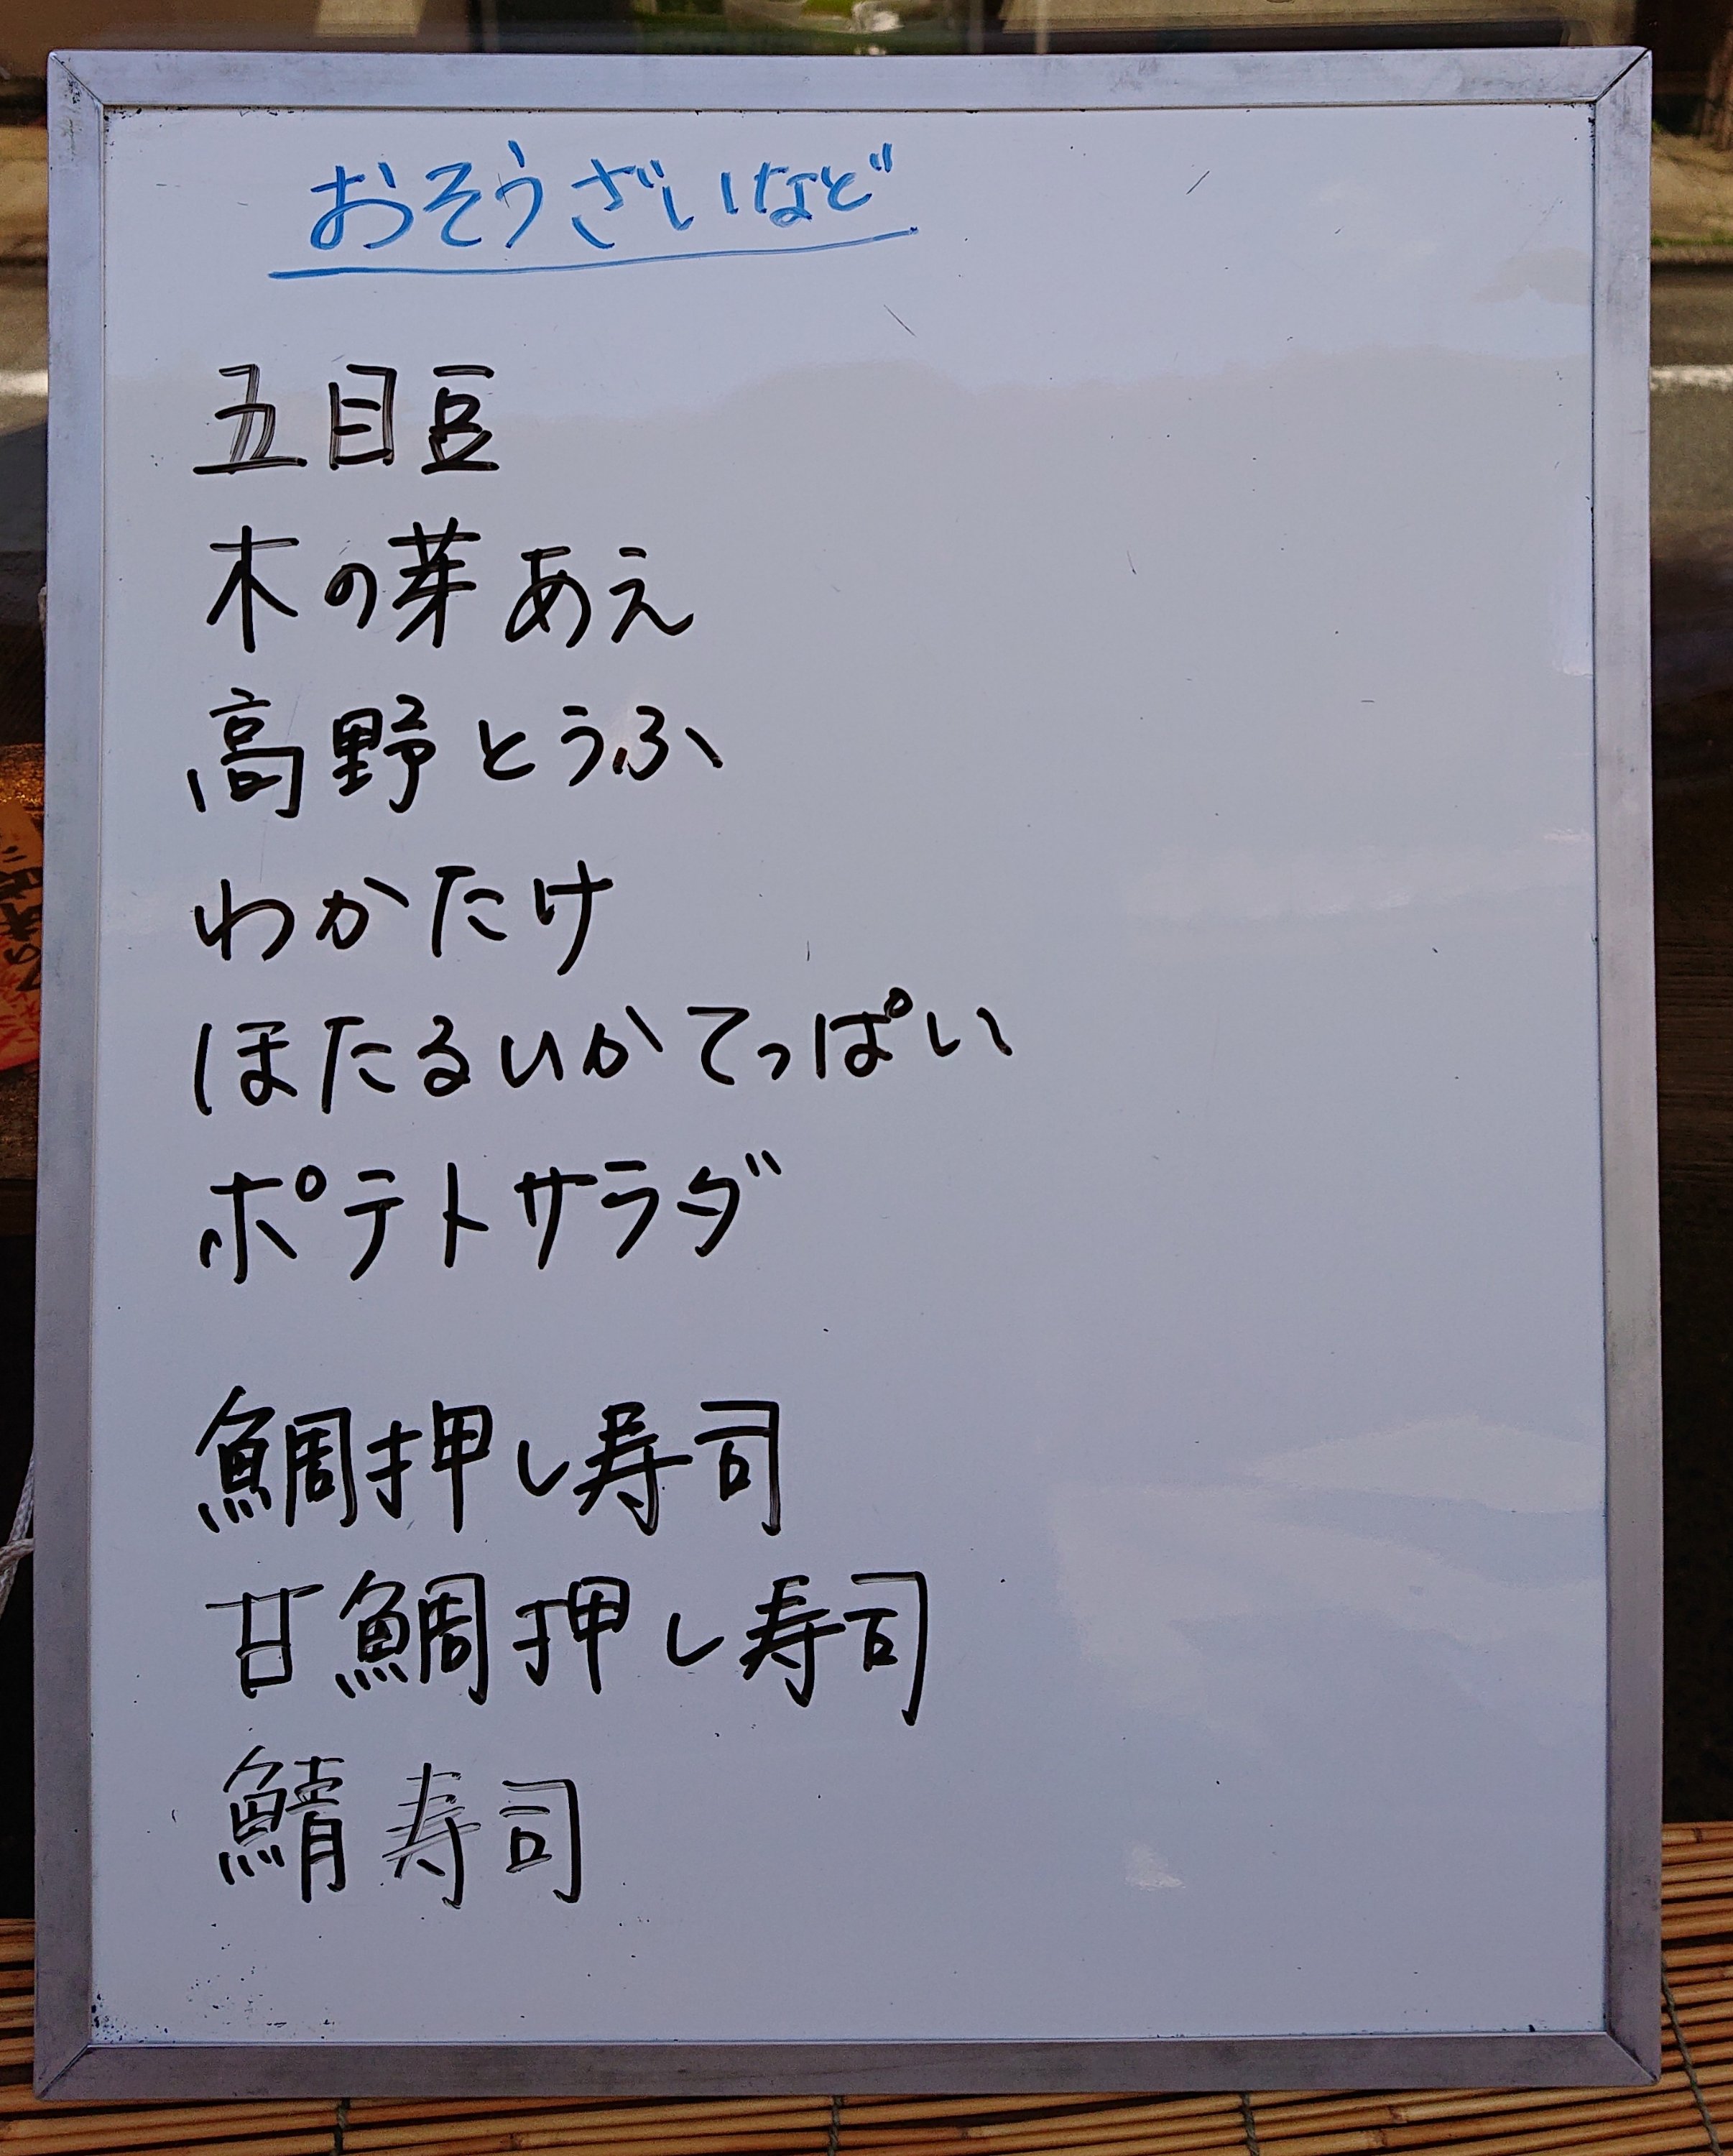 おそうざいなど
五目豆
木の芽あえ
高野とうふ
わかたけ
ほたるいかてっぱい
ポテトサラダ
鯛押し寿司
甘鯛押し寿司
鯖寿司